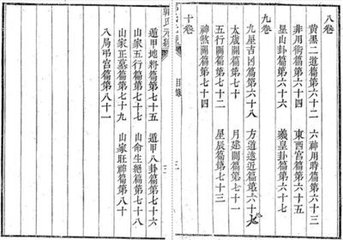 八卷
黃黑二道篇第六十二　六神用時篇第六十三
非用術篇第六十四　東西宮篇第六十五
星山卦篇第六十六　羲皇卦篇第六十七
九卷
九星吉凶篇第六十八　方道遠近篇第六十九
太歲關篇第七十　月建關篇第七十一
五行關篇第七十二　星辰篇第七十三
神煞關篇第七十四
十卷
目錄
三
遁甲地料篇第七十五　遁甲八卦篇第七十六
山家五行篇第七十七　山命生絕篇第七十八
山家正墓篇第七十九　山家旺神篇第八十
八局弔宮篇第八十一